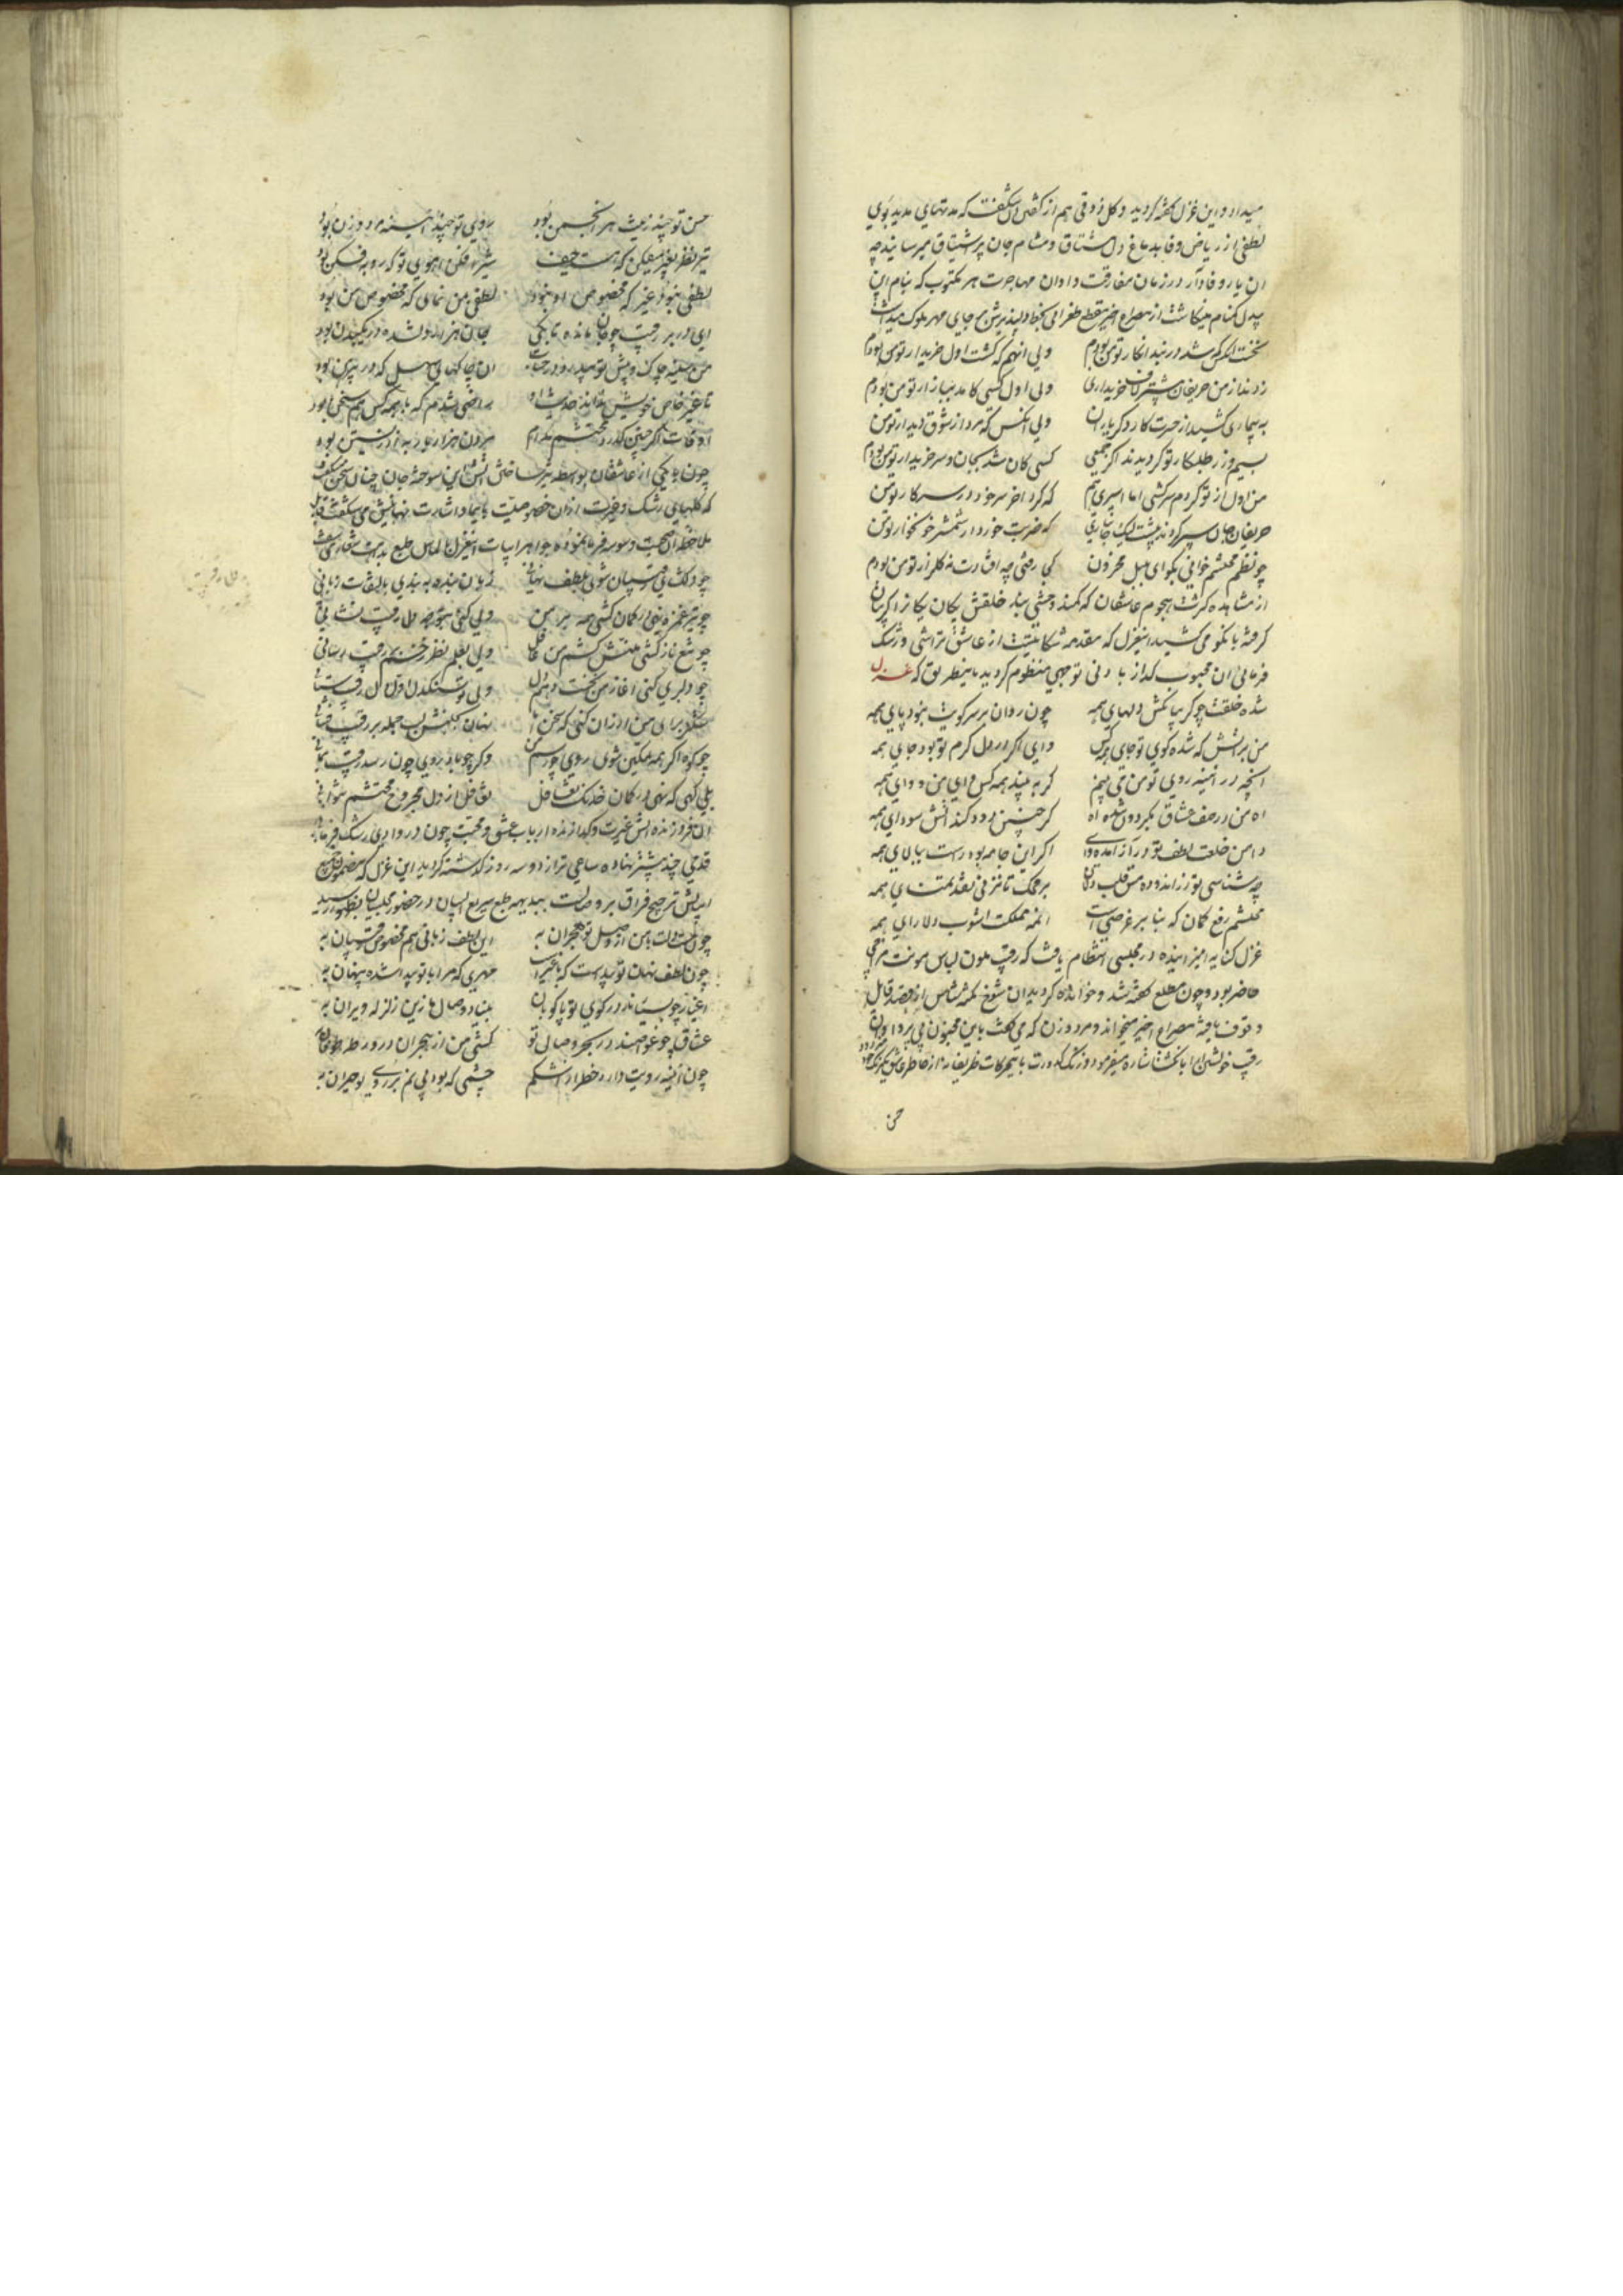 میداد و این غزل گفته گردید و کل ذوقی هم از گلشن دل شکفت که مدتهای مدید بوی
لطفی از ریاض وفا بدماغ دل مشتاق و مشام جان پر اشتیاق میرسانید چه
ان یار وفادار در زمان مفارقت و اوان مهاجرت هر مکتوب که بنام این
بیدل کمنام مینکاشت از مصراع اخیر مقطع طغرائی بخط دلپذیرش بر جای مهر ملوک میداشت
نخست انکس که شد در بند انکار تو من بودم ولی انهم که گشت اول خریدار تو من بودم
زدند از من حریفان بیشتر لاف خریداری ولی اول کسی کامد ببازار تو من بودم
به بیماری کشید از حسرت کار دگر یاران ولی انکس که مرد از شوق دیدار تو من
بسیم و زر طلبکار تو گردیدند اگر جمعی کسی کان شد بجان و سر خریدار تو من بودم
من اول از تو کردم سرکشی اما اسیری هم که کرد اخر سر خود در سر کار تو من
حریفان جان سپر کردند پیشت لیک جانبازی که ضربت خورد از شمشیر خونخوار تو من
چو نظم محتشم خوانی بگو ای بلبل محزون کجا رفتی چه افتادت نه گلزار تو من بودم
از مشاهده کثرت هجوم عاشقان که کمند وحشی بند خلقش یکان یکان را گریبان
گرفته بان کو می کشید این غزل که مقدمه شکایتیست از عاشق تراشی و رشک
فرمائی ان محبوب که از با دنی توجهی منظوم گردید باینطریق که غزل
شده خلقت چو گریبان کش دلهای همه چون روان بر سر کویت نبود پای همه
من بر اتش که شده کوی تو جای همه کس وای اگر در دل گرم تو بود جای همه
انچه در ائینه روی تو من می بینم گر به بیند همه کس وای من و وای همه
اه من در صف عشاق بگردون شده اه گر چنین دود کند اتش سودای همه
دامن خلعت لطف تو دراز امده وای اگر این جامه بود راست ببالای همه
چه شناسی تو زر اندوده مس قلب دلان بر محک تا نزنی نقد تمنای همه
محتشم رفع گمان که بنا بر غرضی است انمه مملکت اشوب دلارای همه
غزل کنایه امیز اینده در مجلسی انتظام یافت که رقیب ملون لباس مونث مزاجی
حاضر بود و چون مطلع گفته شد و خوانده گردید ان شوخ نکته شناس از قصد قایل
وقوف یافته مصراع اخیر میخواند و مرد و زن که می گفت باین مجنون بی پروا و ان
رقیب خویشتن ارا بانگشت اشاره میفرمود و زنگ کدورت باینحرکات ظریفانه از خاطر عاشق یکرنگ خود
میزدود
حسن
حسن تو چند زینت هر انجمن بود روی تو چند اینه مرد و زن بود
تیر نظر بغیر میفکن که هست حیف شیر افکن اهوئی تو که روبه فکن بود
لطفی بنبود غیر که مخصوص او بنود لطفی بمن نمای که مخصوص من بود
ای در بر رقیب چو جان مانده تا بکی جان هزار دلشده در یک بدن بود
من سینه چاک و پیش تو بیدرد در حساب ان چاکهای سهل که در پیرهن بود
تا غیر خاص خویش نداند حدیث او راضی شدم که با همه کس هم سخن بود
اوقات اگر چنین گذرد محتشم مدام مردن هزار بار به از زیستن بود
چون با یکی از عاشقان بواسطه تیز ساختن اتش این سوخته جان چنان سخن میگفت
که گلهای رشک و غیرت از ان خصوصیت بایما و اشارت نهانیش می شکفت قابل
ملاحظه ان صحبت وسوسه فرما نموده جواهر ابیات اینغزل بالماس طبع بدیهت شعار می سفت
چو دلگشای رقیبان شوی بلطف نهانی زبان بنده به بندی بالتفات زبانی
چو تیر غمزه نهی در کمان کشی همه بر من ولی کنی متوجه دل رقیب نشانی
چو تیغ ناز کشی منتش کشم من غافل ولی بعلم نظر زخم بر رقیب رسانی
چو دلبری کنی اغاز من نخست دهم دل ولی تو سنگدل اول دل رقیب ستانی
شکر برای من ارزان کنی گه سخن اما نهان بجنبش لب جمله بر رقیب فشانی
چو کوه اگر همه تمکین شوی بروی چو رسم من وگر چو باد بروی چون رسد رقیب بمانی
بلی کهی که نهی در کمان خدنک تغافل تغافل از دل مجروح محتشم نتوانی
ان فروزنده اتش غیرت و گدازنده ارباب عشق و محبت چون در وادی رشک فرمائی
قدمی چند پیشتر نهاده ساعی تر از دو سه روز گذشته گردید این غزل که مضمون جمیع
ابیاتش ترجیح فراق بر وصالست ببدیهه طبع سریع البیان در حضور مجلسیان بظهور رسید
چون نیست دلت با من از وصل تو هجران به این لطف زبانی هم مخصوص رقیبان به
چون لطف نهان تو پیداست که با غیر است مهری که مرا با تو پیدا شده پنهان به
اغیار چو بسیارند در کوی تو پا کوبان بنیاد وصال ما زین زلزله ویران به
عشاق چو غواصند در بحر وصال تو کشتی من از هجران در ورطه طوفان به
چون اینه رویت دارد خطر از اشکم چشمی که بود بی نم بر روی تو حیران به